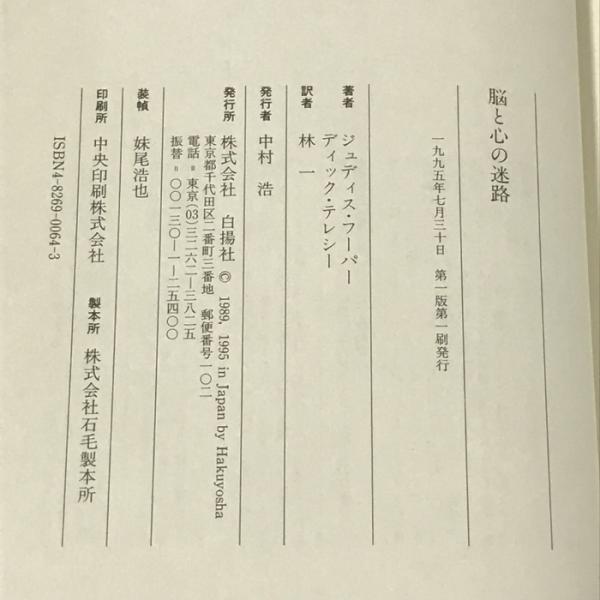 脳と心の迷路
一九九五年七月三十日 第一版第一刷発行
著者 ジュディス・フーパー
ディック・テレシー
訳者 林 一
発行者 中村 浩
発行所 株式会社 白揚社 © 1989, 1995 in Japan by Hakuyosha
東京都千代田区二番町三番地 郵便番号一〇二
電話=東京(03)三二六二―三八二五
振替=〇〇一三〇―一―二五四〇〇
装幀 妹尾浩也
印刷所 中央印刷株式会社 製本所 株式会社石毛製本所
ISBN4-8269-0064-3